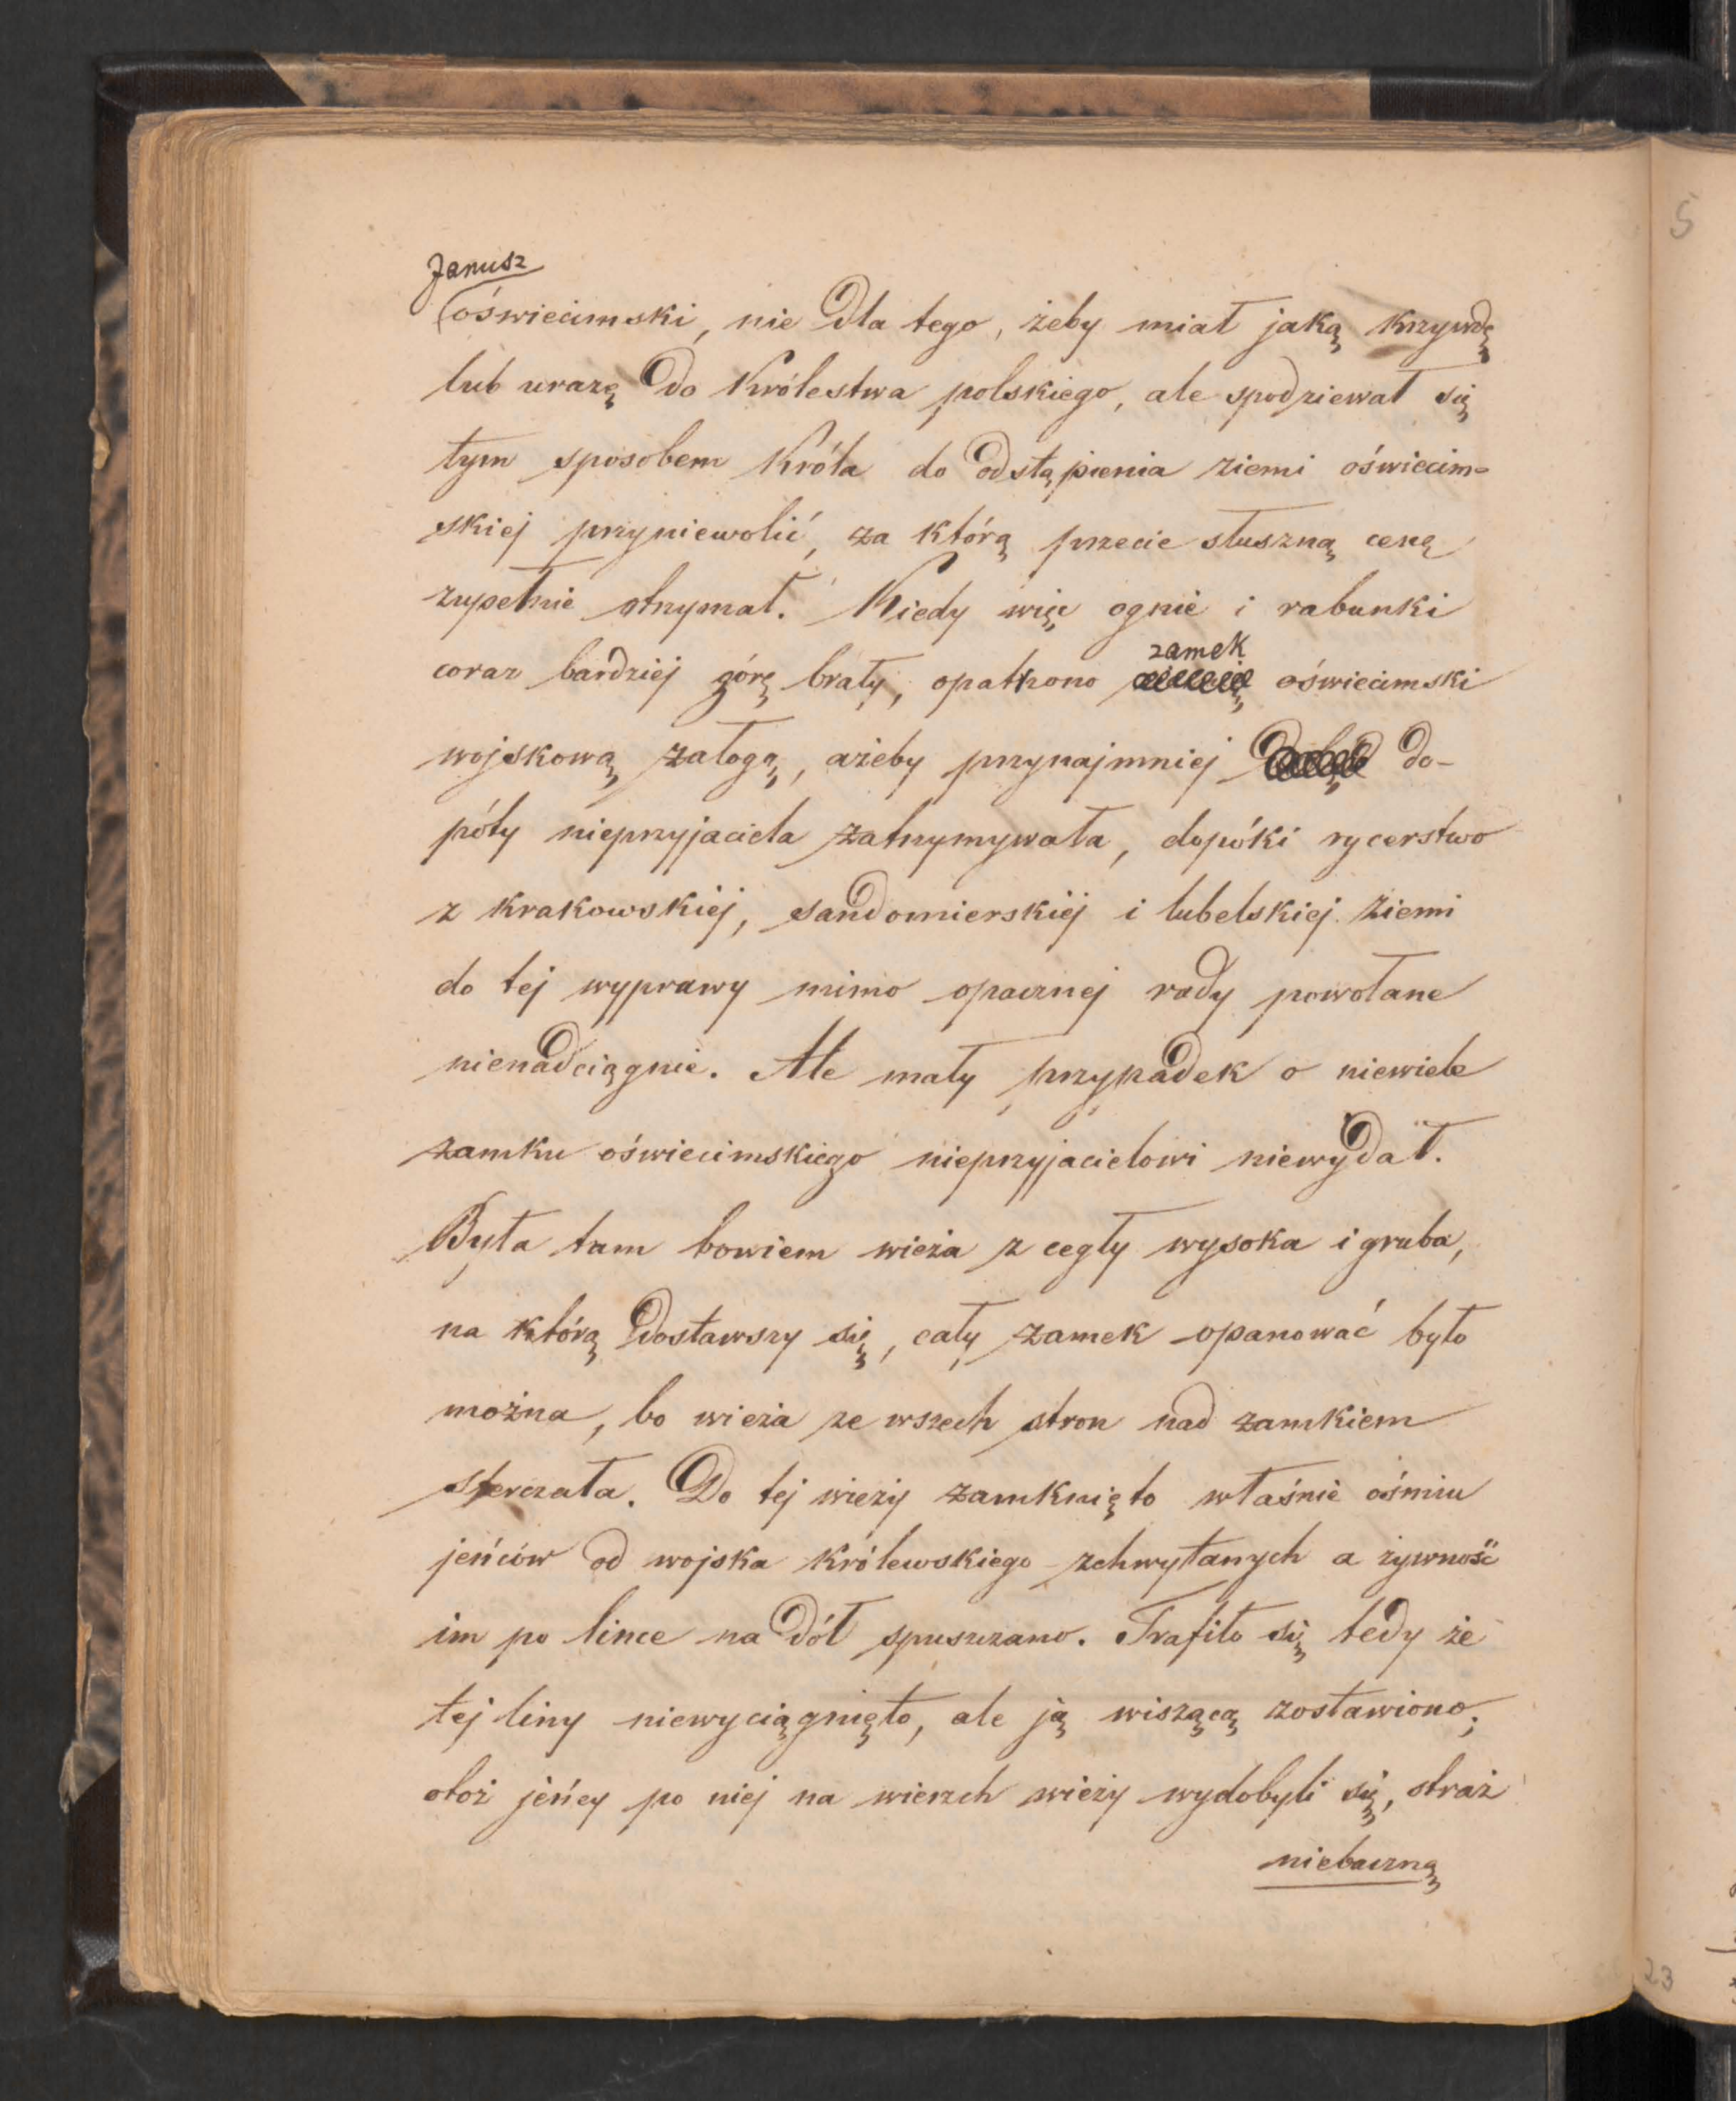 Janusz
oświecimski, nie dla tego, żeby miał jaką krzywdę
lub urazę do Królestwa polskiego, ale spodziewał się
tym sposobem Króla do odstąpienia ziemi oświecim-
skiej przyniewolić, za którą przecie słuszną cenę
zupełnie otrzymał. Kiedy więc ognie i rabunki
zamek
coraz bardziej górę brały, opatrzono oświecimski
wojskową załogą, ażeby przynajmniej do-
póty nieprzyjaciela zatrzymywała, dopóki rycerstwo
z krakowskiéj, sandomierskiéj i lubelskiej ziemi
do tej wyprawy mimo opacznej rady powołane
nienadciągnie. Ale mały przypadek o niewiele
zamku oświecimskiego nieprzyjacielowi niewydał.
Była tam bowiem wieża z cegły wysoka i gruba,
na którą dostawszy się, cały zamek opanować było
można, bo wieża ze wszech stron nad zamkiem
sterczała. Do tej wieży zamknięto właśnie ośmiu
jeńców od wojska królewskiego zchwytanych a żywność
im po lince na dół spuszczano. Trafiło się tedy że
tej liny niewyciągnięto, ale ją wiszącą zostawiono;
otoż jeńcy po niej na wierzch wieży wydobyli się, straż
niebaczną
5
23